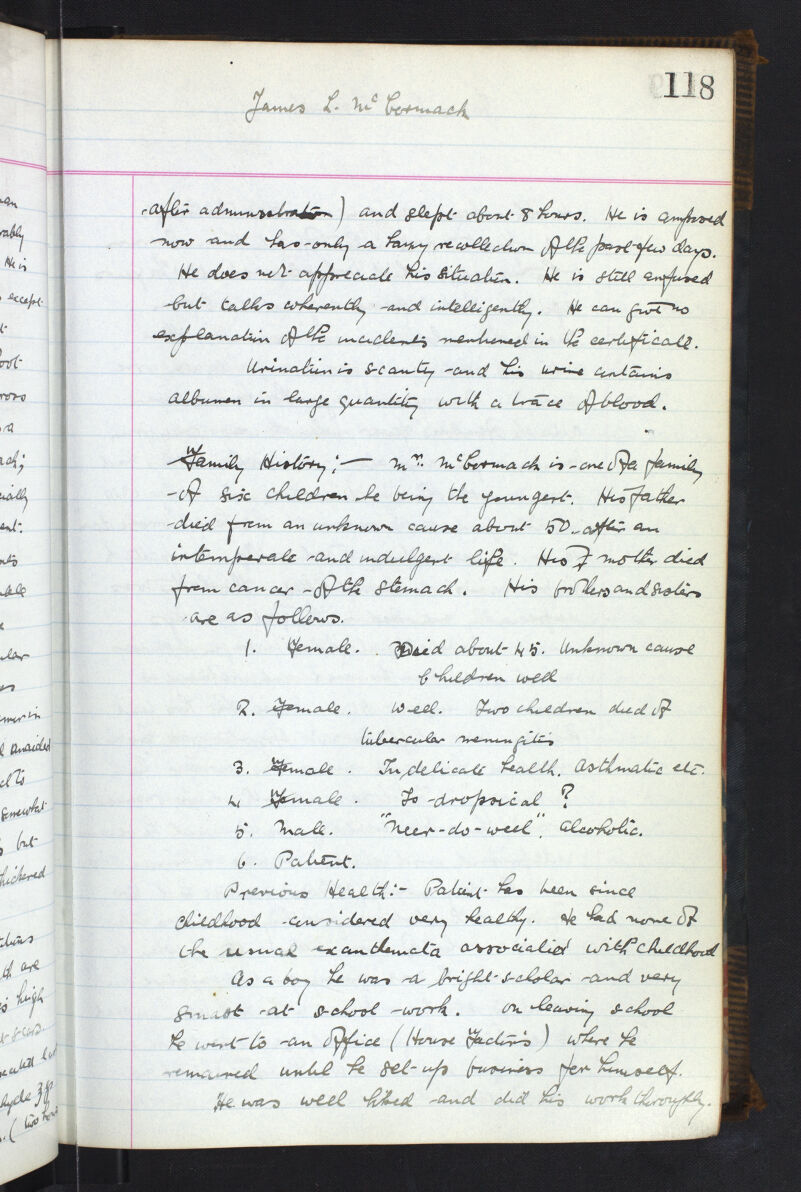 118
James L. Mc Cormack
after administration) and slept about 8 hours. He is confused
now and has only a hazy recollection of the past few days.
He does not appreciate his situation. He is still confused
but talks coherently and intelligently. He can give no
explanation of the incidents mentioned in the certificate.
Urination is scanty and his urine contains
albumen in large quantity with a trace of blood.
Family History:— Mr. McCormack is one of a family
of six children he being the youngest. His father
died from an unknown cause about 50 after an
intemperate and indulgent life. His mother died
from cancer of the stomach. His brothers and sisters
are as follows.
1. Female. Died about 45. Unknown cause
Children well
2. Female. Well. Two children died of
tubercular meningitis
3. Female. In delicate health. Asthmatic etc.
4 Female. Is dropsical ?
5. Male. "Neer-do-weel", alcoholic.
6. Patient.
Previous Health:- Patient has been since
childhood considered very healthy. He had none of
the usual exanthemata associated with childhood
As a boy he was a bright scholar and very
smart at school work. On leaving school
he went to an office (House Factor's) where he
remained until he set up business for himself.
He was well liked and did his work thoroughly.
an
rably
He is
except
oot
ross
a
ially
ent.
nts
ale
e
ular
es
avoided
somewhat
but
thickened
th are
high